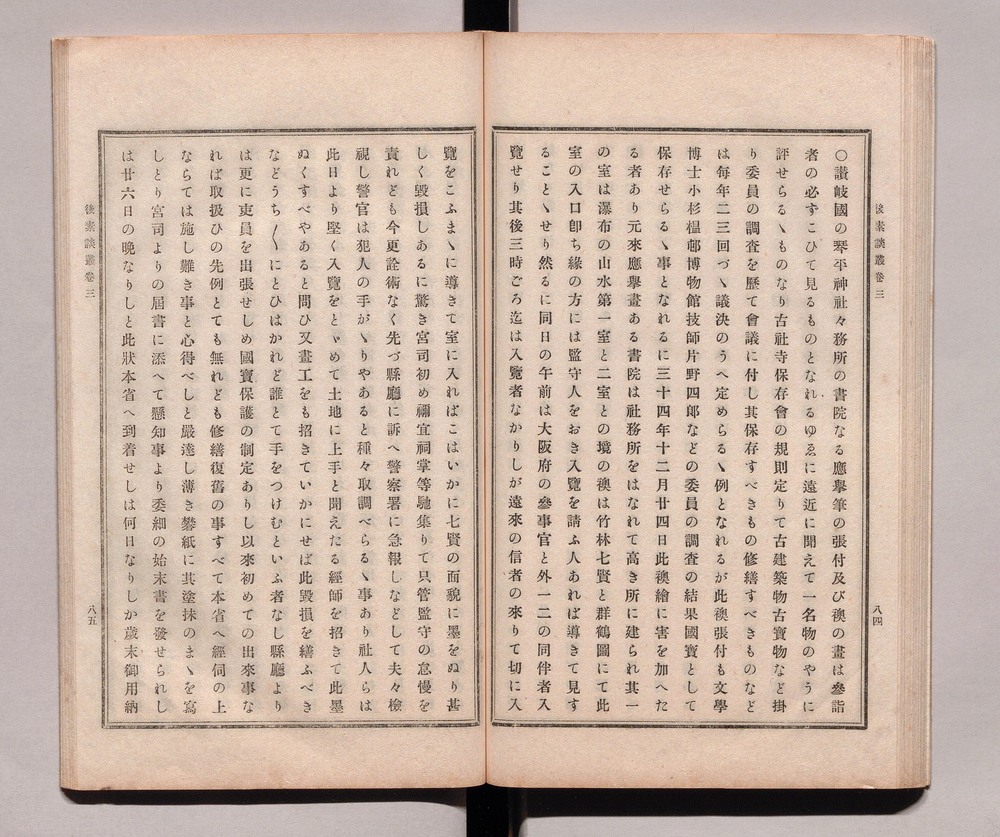 後素談叢卷三
八四
○讃岐國の琴平神社々務所の書院なる應擧筆の張付及び襖の畫は參詣
者の必ずこひて見るものとなれるゆゑに遠近に聞えて一名物のやうに
評せらるヽものなり古社寺保存會の規則定りて古建築物古寶物など掛
り委員の調査を歷て會議に付し其保存すべきもの修繕すべきものなど
は每年二三回づヽ議決のうへ定めらるヽ例となれるが此襖張付も文學
博士小杉榲邨博物館技師片野四郎などの委員の調査の結果國寶として
保存せらるヽ事となれるに三十四年十二月廿四日此襖繪に害を加へた
る者あり元來應擧畫ある書院は社務所をはなれて高き所に建られ其一
の室は瀑布の山水第一室と二室との境の襖は竹林七賢と群鶴圖にて此
室の入口卽ち緣の方には監守人をおき入覽を請ふ人あれば導きて見す
ることヽせり然るに同日の午前は大阪府の參事官と外一二の同伴者入
覽せり其後三時ごろ迄は入覽者なかりしが遠來の信者の來りて切に入
覽をこふまヽに導きて室に入ればこはいかに七賢の面貌に墨をぬり甚
しく毀損しあるに驚き宮司初め禰宜祠掌等馳集りて只管監守の怠慢を
責れども今更詮術なく先づ縣廳に訴へ警察署に急報しなどして夫々檢
視し警官は犯人の手がヽりやあると種々取調べらるヽ事あり社人らは
此日より堅く入覽をとヾめて土地に上手と聞えたる經師を招きて此墨
ぬくすべやあると問ひ又畫工をも招きていかにせば此毀損を繕ふべき
などうち〳〵にとひはかれど誰とて手をつけむといふ者なし縣廳より
は更に吏員を出張せしめ國寶保護の制定ありし以來初めての出來事な
れば取扱ひの先例とても無れども修繕復舊の事すべて本省へ經伺の上
ならては施し難き事と心得べしと嚴達し薄き礬紙に其塗抹のまヽを寫
しとり宮司よりの屆書に添へて懸知事より委細の始末書を發せられし
は廿六日の晚なりしと此狀本省へ到着せしは何日なりしか歲末御用納
後素談叢卷三
八五